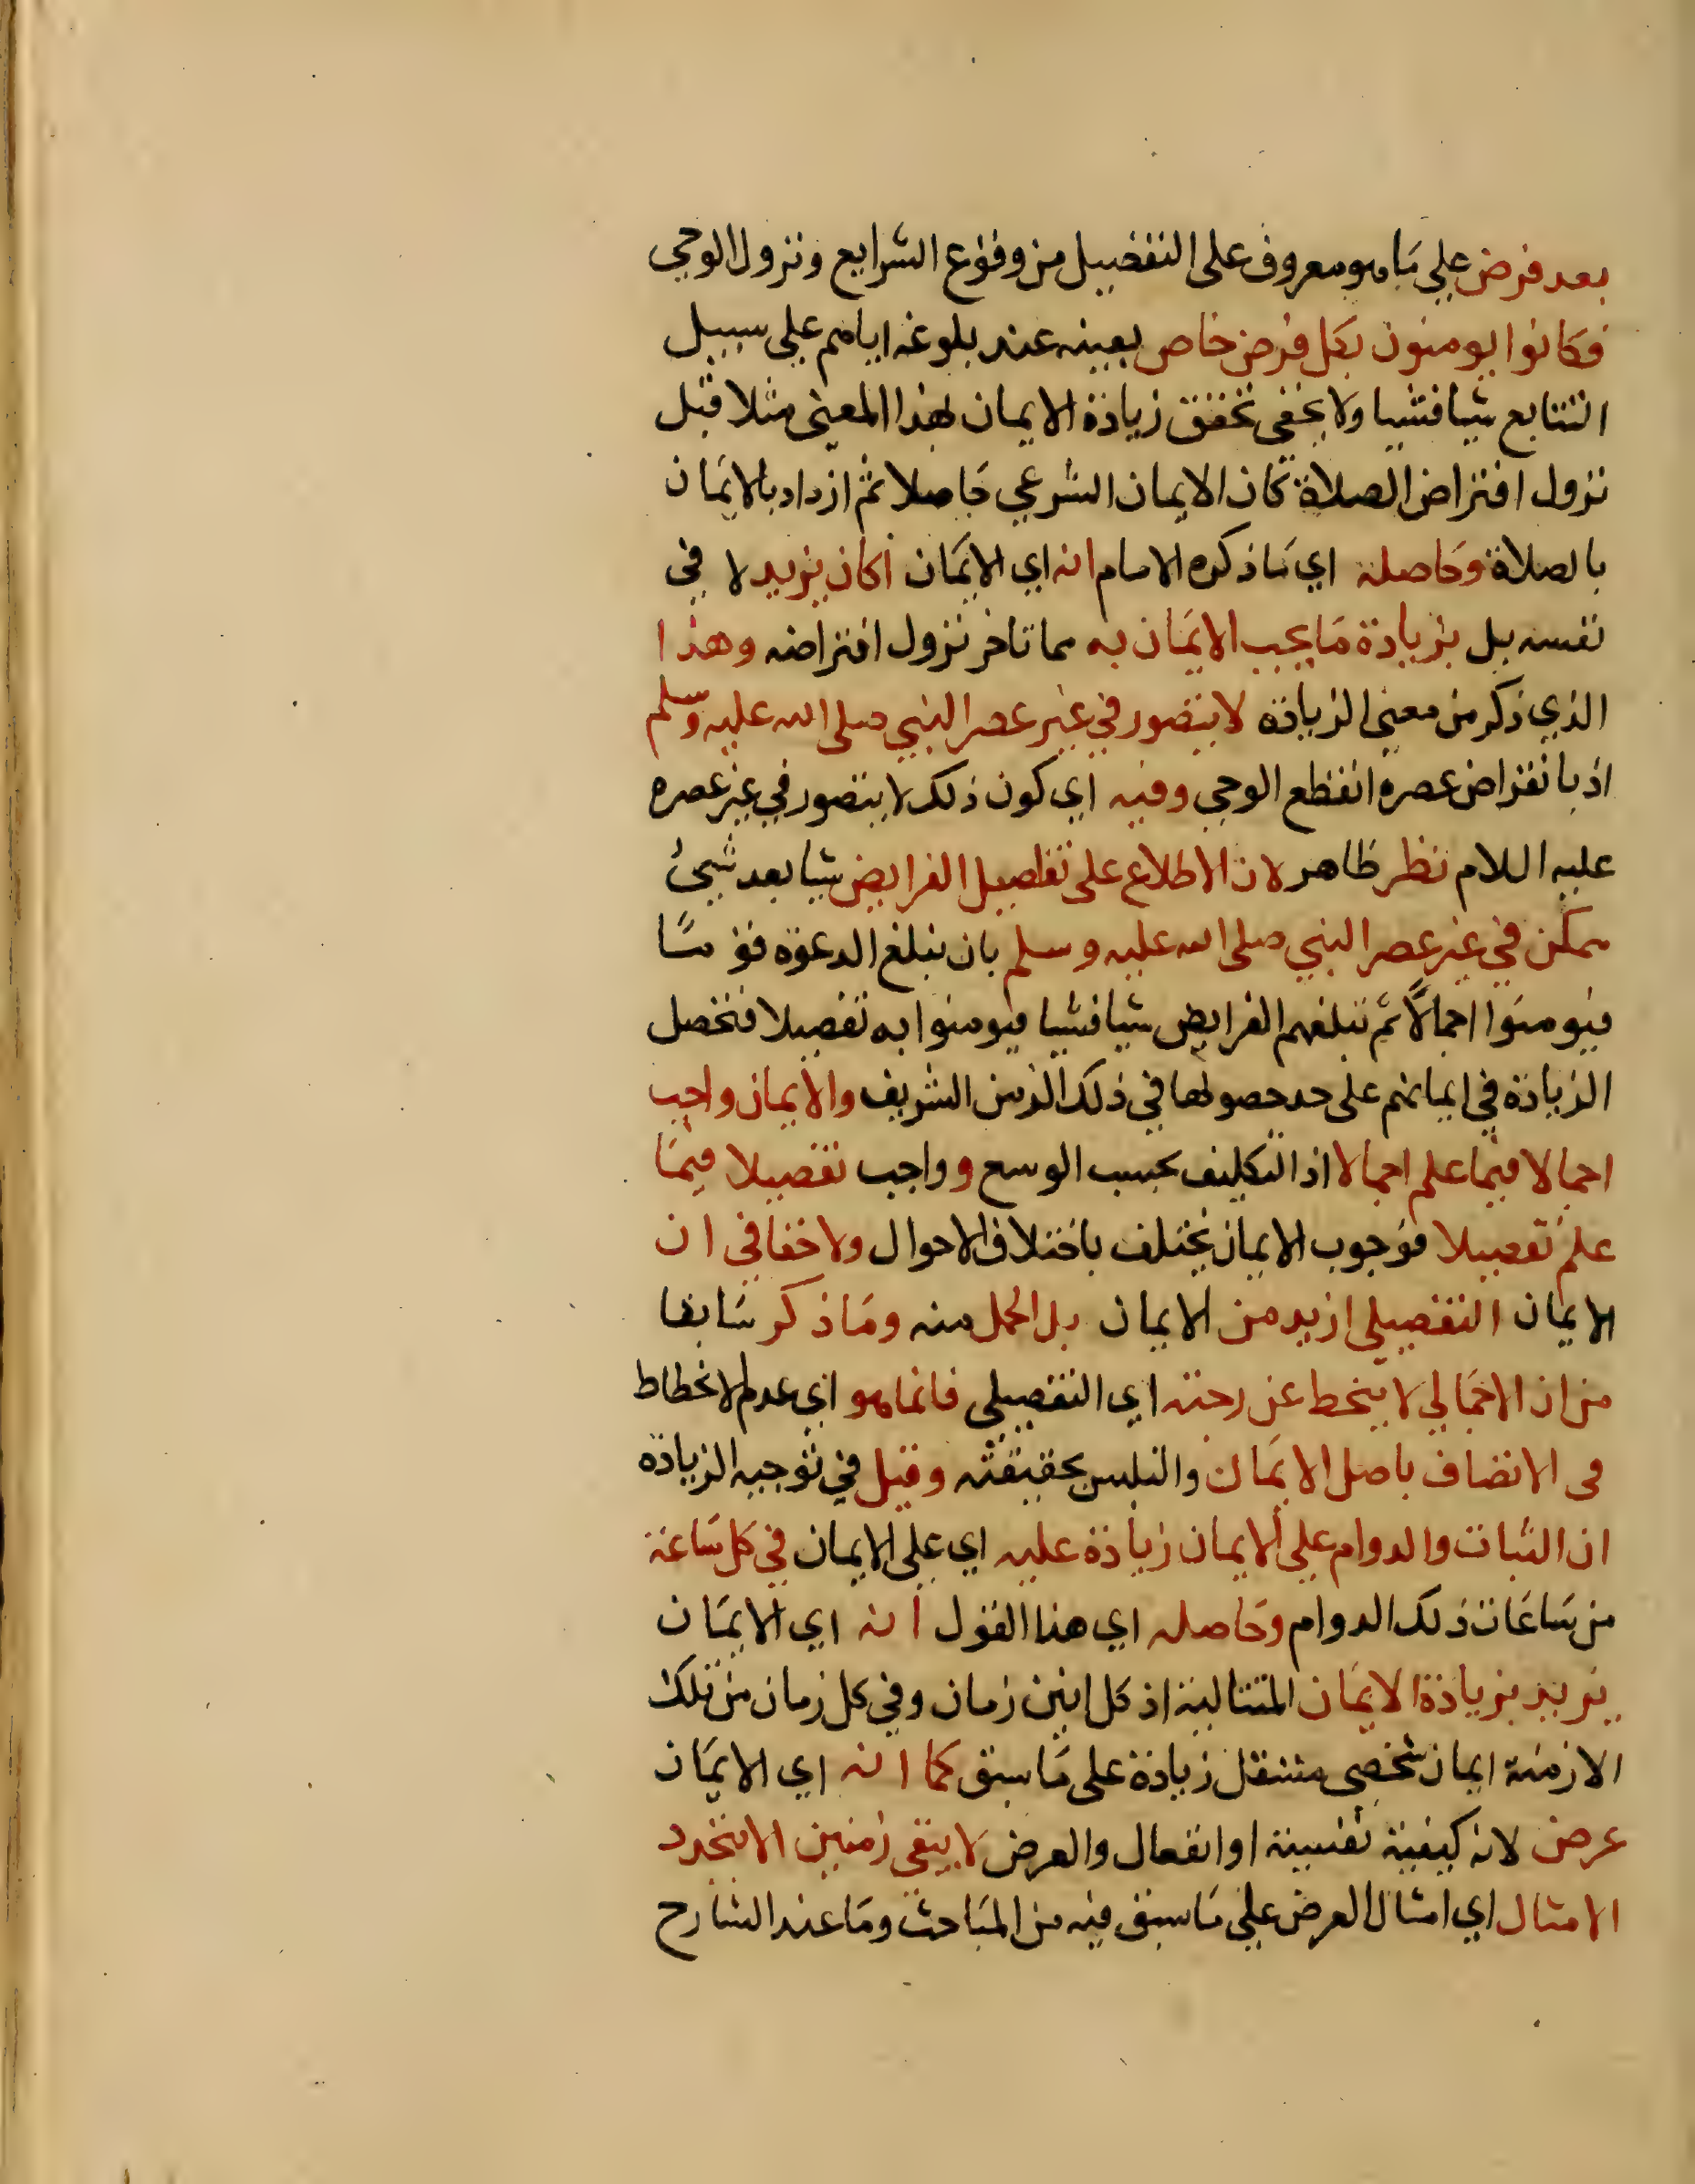 بعد فرض علي ما هو معروف على التفضيل من وقوع الشرايع ونزول الوحي
فكانوا يومنون بكل فرض خاص بعينه عند بلوغه اياهم علي سبيل
التتابع شيا فشيا ولا يخفي تحقق زيادة الايمان لهذا المعنى مثلا قبل
نزول افتراض الصلاة كان الايمان الشرعي حاصلا ثم ازداد بالايمان
بالصلاة وحاصله اي ما ذكره الامام انه اي الايمان اكان يزيد لا في
نفسه بل بزيادة ما يجب الايمان به مما تاخر نزول افتراضه وهذا
الذي ذكر من معنى الزيادة لا يتصور في غير عصر النبي صلى الله عليه وسلم
اذ بانقراض عصره انقطع الوحي وفيه اي كون ذلك لا يتصور في غير عصره
عليه اللام نظر ظاهر لان الاطلاع على تفاصيل الفرايض شيا بعد شيئ
ممكن في غير عصر النبي صلى الله عليه وسلم بان نبلغ الدعوة قو ما
فيومنوا اجمالا ثم نبلغهم الفرايض شيا فشيا فيومنوا به تفصيلا فتحصل
الزيادة في ايمانهم على حد حصولها في ذلك الزمن الشريف والايمان واجب
اجمالا فيما علم اجمالا اذ التكليف بحسب الوسع وواجب تفصيلا فيما
علم تفصيلا فوجوب الايمان يختلف باختلاف الاحوال ولا خفا في ان
الايمان التفصيلي ازيد من الايمان بل اكمل منه وما ذكر سابقا
من ان الاجمالي لا ينحط عن رجته اي التفصيلي فانما هو اي عدم الانحطاط
في الاتصاف باصل الايمان والتلبس بحقيقته وقيل في توجيه الزيادة
ان الثبات والدوام علي الايمان زيادة عليه اي علي الايمان في كل ساعة
من ساعات ذلك الدوام وحاصله اي هذا القول انه اي الايمان
يزيد بزيادة الايمان المتتالية اذ كل اين زمان وفي كل زمان من تلك
الازمنة ايمان شخصي مستقل زيادة على ما سبق كما انه اي الايمان
عرض لانه كيفية نفسية او انفعال والعرض لا يبقى زمنين الا بتجدد
الامثال اي امثال العرض علي ما سبق فيه من المباحث وما عند الشارح